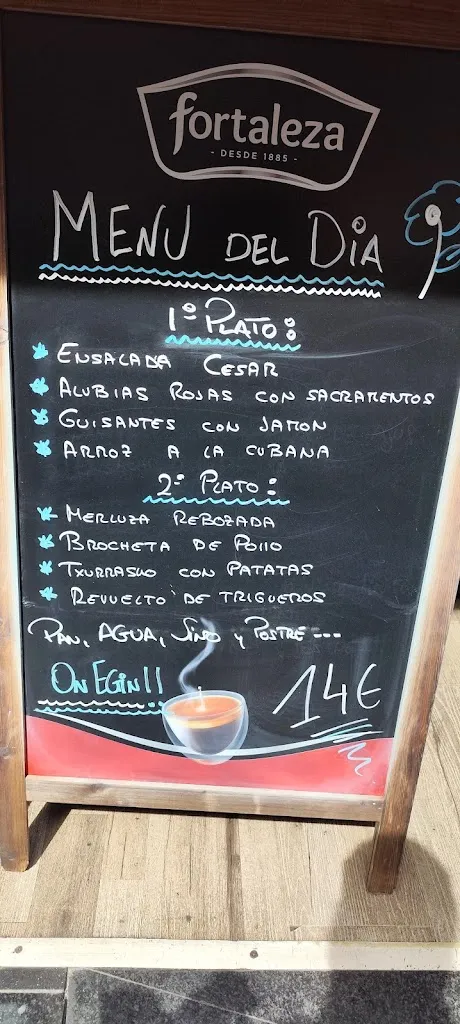 fortaleza
- DESDE 1885 -
MENU DEL DIA
1º PLATO:
ENSALADA CESAR
ALUBIAS ROJAS CON SACRAMENTOS
GUISANTES CON JAMON
ARROZ A LA CUBANA
2º PLATO:
MERLUZA REBOZADA
BROCHETA DE POLLO
TXURRASKO CON PATATAS
REVUELTO DE TRIGUEROS
PAN, AGUA, VINO Y POSTRE ---
ON EGIN!!
14€